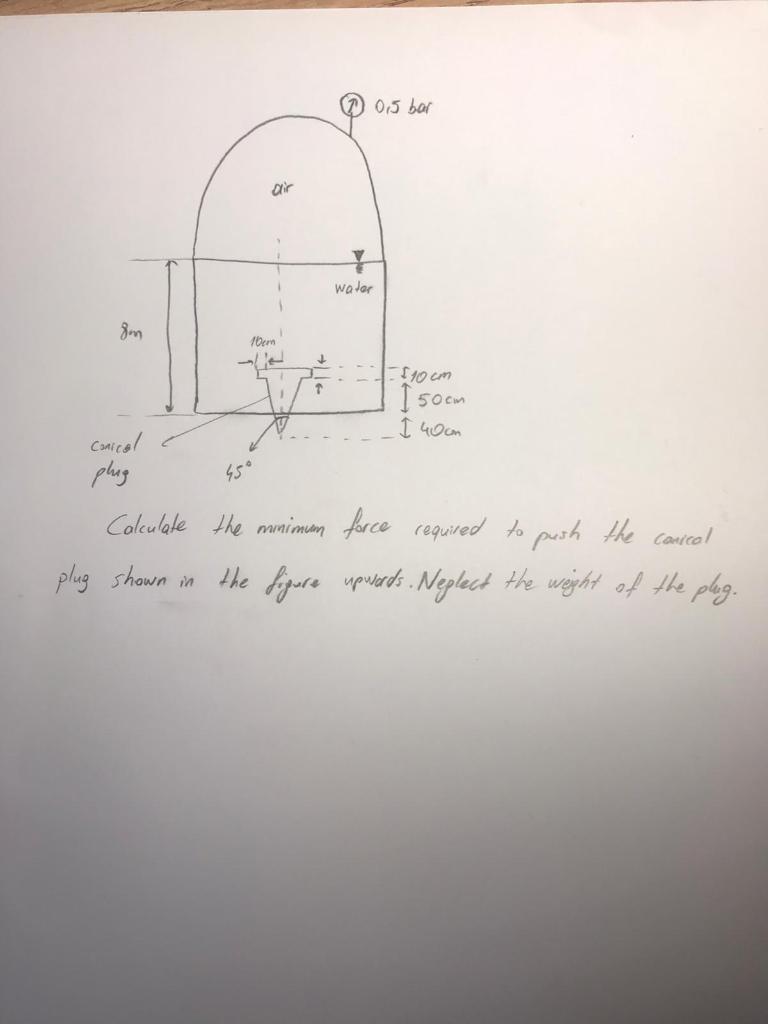 0,5 bar
air
water
8m
10cm
10 cm
50cm
40cm
conical
plug
45°
Calculate the minimum force required to push the conical
plug shown in the figure upwards. Neglect the weight of the plug.